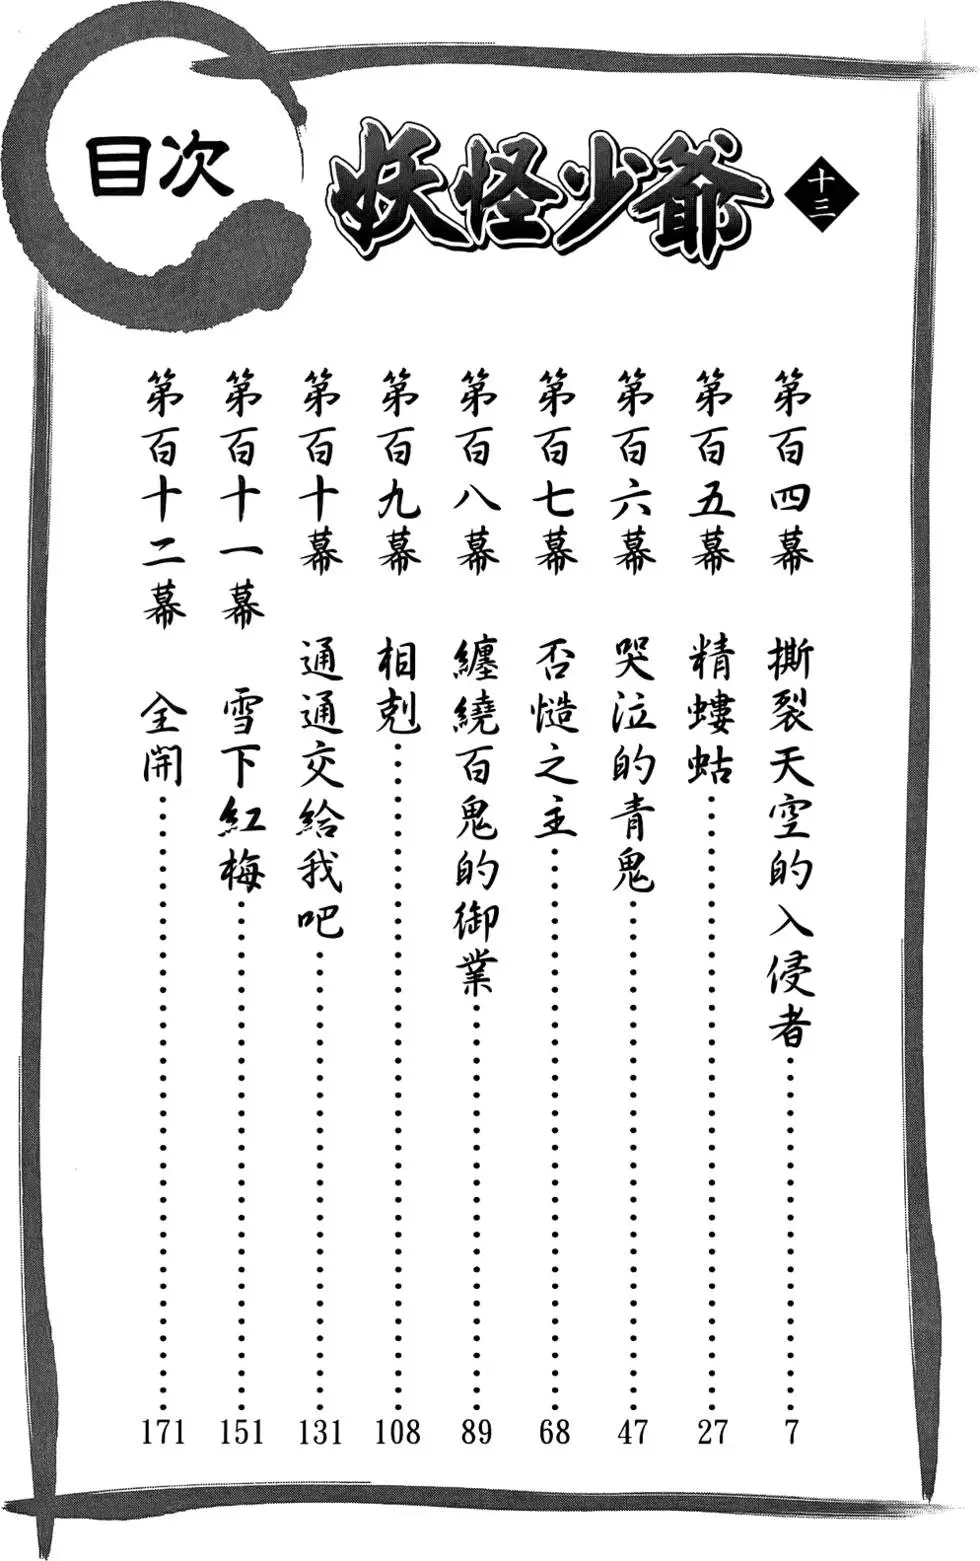 目次
妖怪少爺
十三
第百四幕 撕裂天空的入侵者……7
第百五幕 精螻蛄……27
第百六幕 哭泣的青鬼……47
第百七幕 否慥之主……68
第百八幕 纏繞百鬼的御業……89
第百九幕 相剋……108
第百十幕 通通交給我吧……131
第百十一幕 雪下紅梅……151
第百十二幕 全開……171